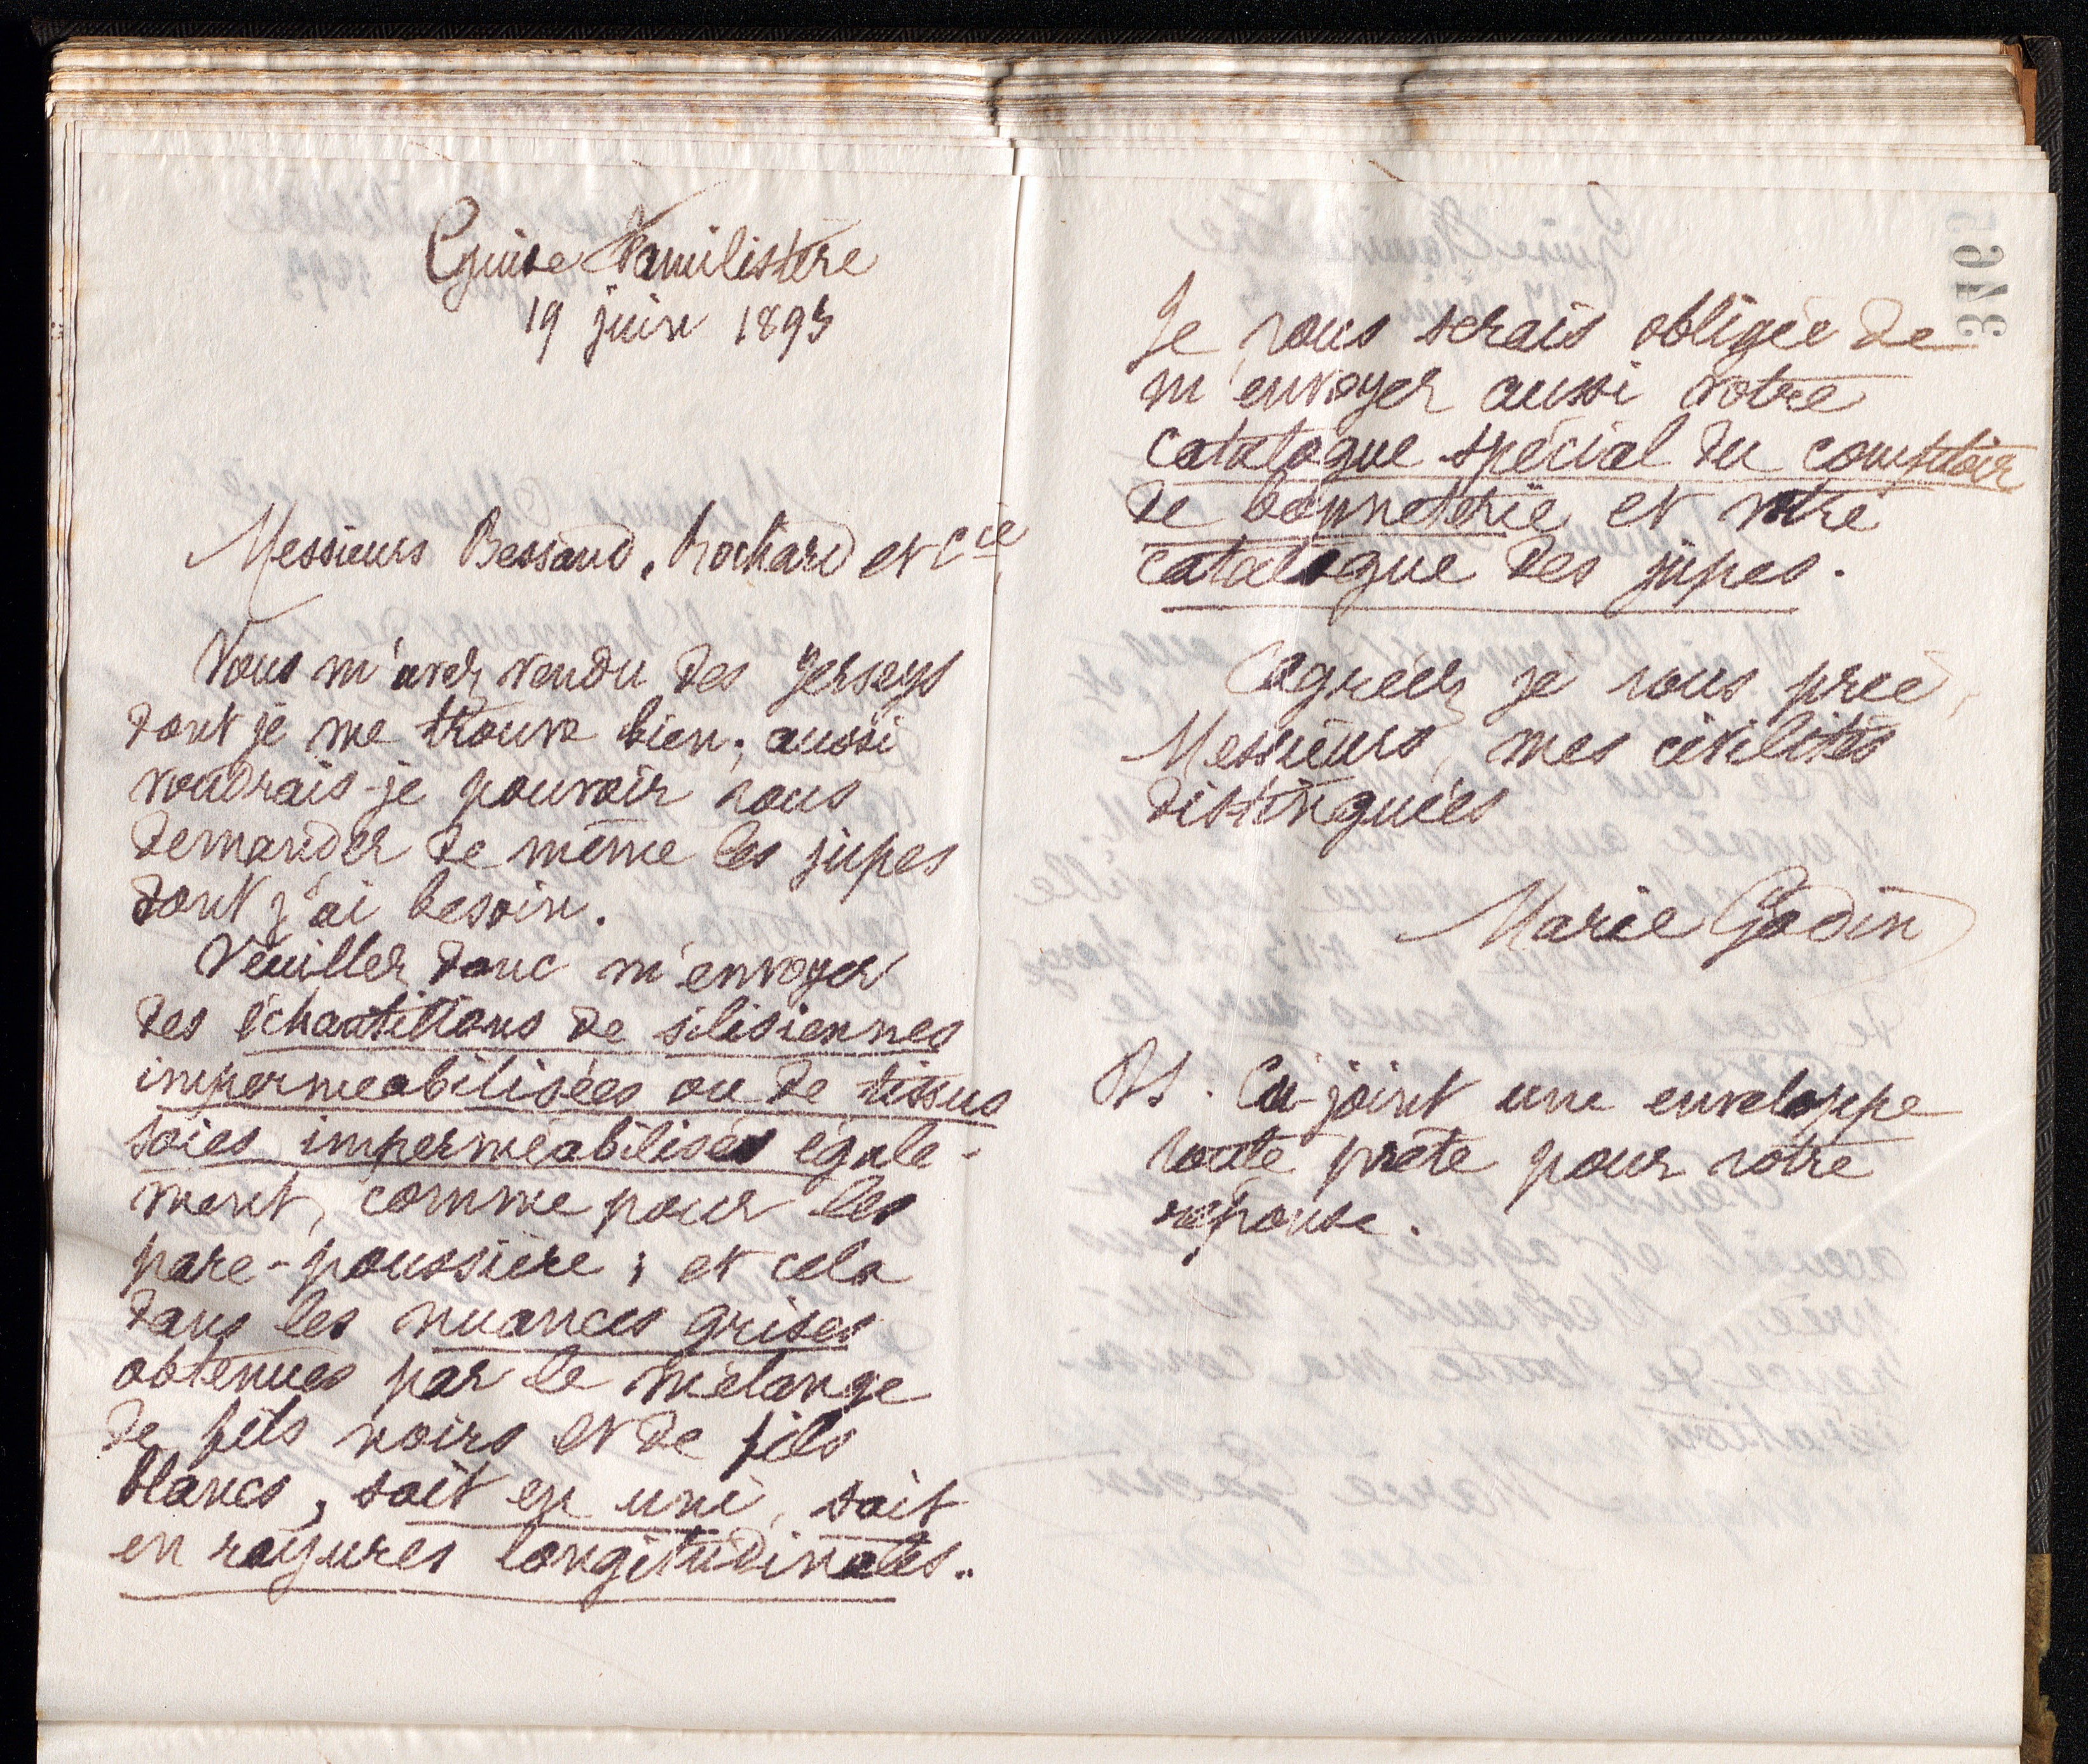 Guise Familistère
19 juin 1893
Messieurs Bessand, Rochard et Cie
Vous m'avez vendu des jerseys
dont je me trouve bien; aussi
voudrais-je pouvoir vous
demander de même les jupes
dont j'ai besoin.
Veuillez donc m'envoyer
des échantillons de silisiennes
imperméabilisées ou de tissus
soies imperméabilisés égale-
ment, comme pour les
pare-poussière; et cela
dans les nuances grises
obtenues par le mélange
de fils noirs et de fils
blancs, soit en uni, soit
en rayures longitudinales.
346
Je vous serais obligée de
m'envoyer aussi votre
catalogue spécial du comptoir
de bonneterie et votre
catalogue des jupes.
Agréez je vous prie,
Messieurs, mes civilités
distinguées
Marie Godin
PS. Ci-joint une enveloppe
toute prête pour votre
réponse.